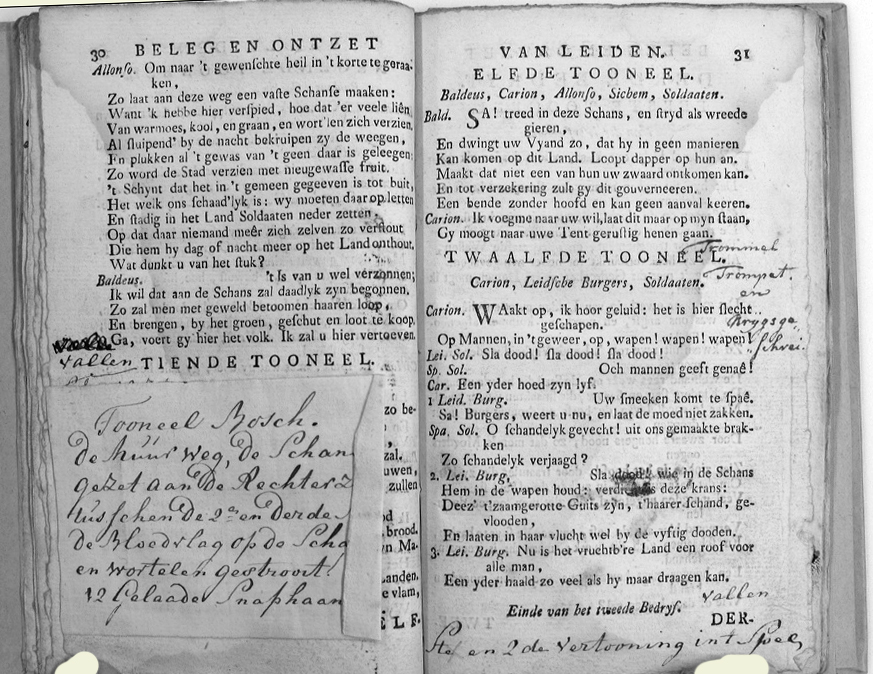 30 BELEG EN ONTZET
Allonso. Om naar 't gewenschte heil in 't korte te geraa-
ken,
Zo laat aan deze weg een vaste Schanse maaken:
Want 'k hebbe hier verspied, hoe dat 'er veele liên
Van warmoes, kool, en graan, en wort'len zich verzien,
Al sluipend' by de nacht bekruipen zy de weegen,
En plukken al 't gewas van 't geen daar is geleegen:
Zo word de Stad verzien met nieugewasse fruit.
't Schynt dat het in 't gemeen gegeeven is tot buit,
Het welk ons schaad'lyk is: wy moeten daar op letten
En stadig in het Land Soldaaten neder zetten,
Op dat daar niemand meêr zich zelven zo verstout
Die hem hy dag of nacht meer op het Land onthout.
Wat dunkt u van het stuk?
Baldeus. 't Is van u wel verzonnen;
Ik wil dat aan de Schans zal daadlyk zyn begonnen.
Zo zal men met geweld betoomen haaren loop,
En brengen, by het groen, geschut en loot te koop.
Ga, voert gy hier het volk. Ik zal u hier vertoeven.
vallen
TIENDE TOONEEL.
Tooneel Bosch.
de huur weg, de Schan
gezet aan de Rechter z
tusschen de 2de en derde
de Bloedvlag op de Scha
en wortelen gestrooit.
12 Gelaade Snaphaan
zo be-
,
zal.
uwen,
zullen
od
brood.
n Ma-
Landen.
e vlam,
ELF-
VAN LEIDEN. 31
ELFDE TOONEEL.
Baldeus, Carion, Allonso, Sichem, Soldaaten.
Bald. SA! treed in deze Schans, en stryd als wreede
gieren,
En dwingt uw Vyand zo, dat hy in geen manieren
Kan komen op dit Land. Loopt dapper op hun an.
Maakt dat niet een van hun uw zwaard ontkomen kan.
En tot verzekering zult gy dit gouverneeren.
Een bende zonder hoofd en kan geen aanval keeren.
Carion. Ik voeg me naar uw wil, laat dit maar op myn staan,
Gy moogt naar uwe Tent gerustig henen gaan.
Trommel
TWAALFDE TOONEEL.
Trompet.
Carion, Leidsche Burgers, Soldaaten.
en
Carion. WAakt op, ik hoor geluid: het is hier slecht
geschapen.
Krygsge
Op Mannen, in 't geweer, op, wapen! wapen! wapen!
schrei.
Lei. Sol. Sla dood! sla dood! sla dood!
Sp. Sol. Och mannen geeft genaê!
Car. Een yder hoed zyn lyf.
1 Leid. Burg. Uw smeeken komt te spaê.
Sa! Burgers, weert u nu, en laat de moed niet zakken.
Spa. Sol. O schandelyk gevecht! uit ons gemaakte brak-
ken
Zo schandelyk verjaagd?
2. Lei. Burg, Sla dood! wie in de Schans
Hem in de wapen houd: deze krans:
Deez' t'zaamgerotte Guits zyn, t'haarer schand, ge-
vlooden,
En laaten in haar vlucht wel by de vyftig dooden.
3. Lei. Burg. Nu is het vruchtb're Land een roof voor
alle man,
Een yder haald zo veel als hy maar draagen kan.
vallen
Einde van het tweede Bedryf.
DER-
en 2de vertooning int Speel